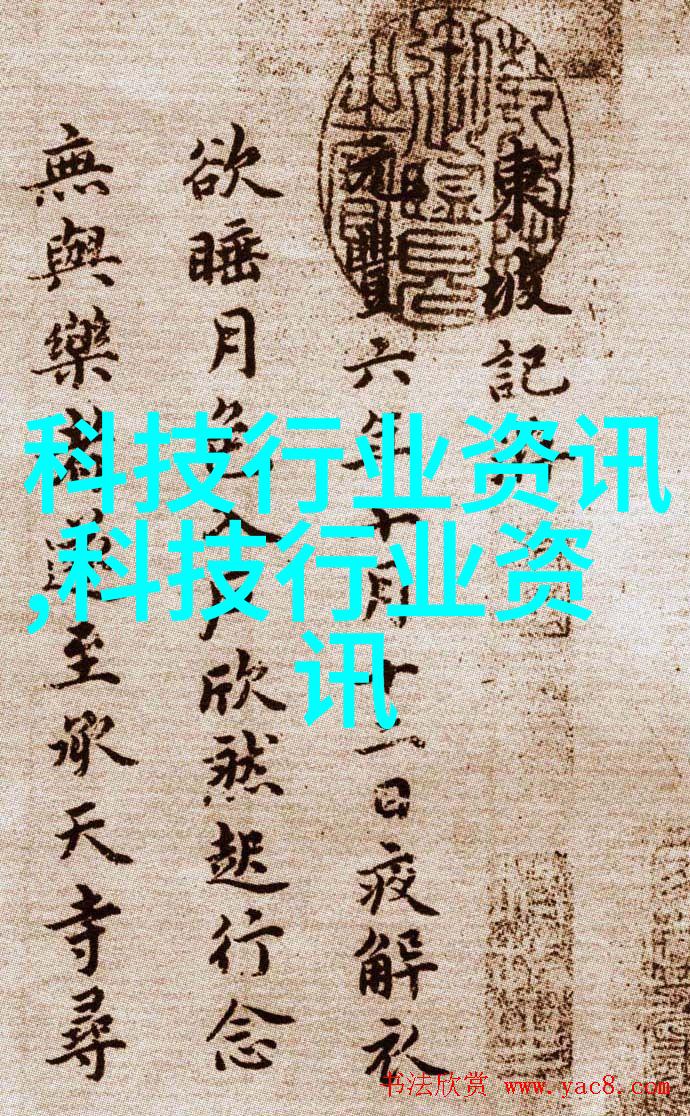 東坡記
元豐六年十月十二日疫解衣
欲睡月色入戶欣然起行念
無與樂者遂至承天寺尋
科技行业资讯
,科技行业资
讯
书法欣赏 www.yac8.com